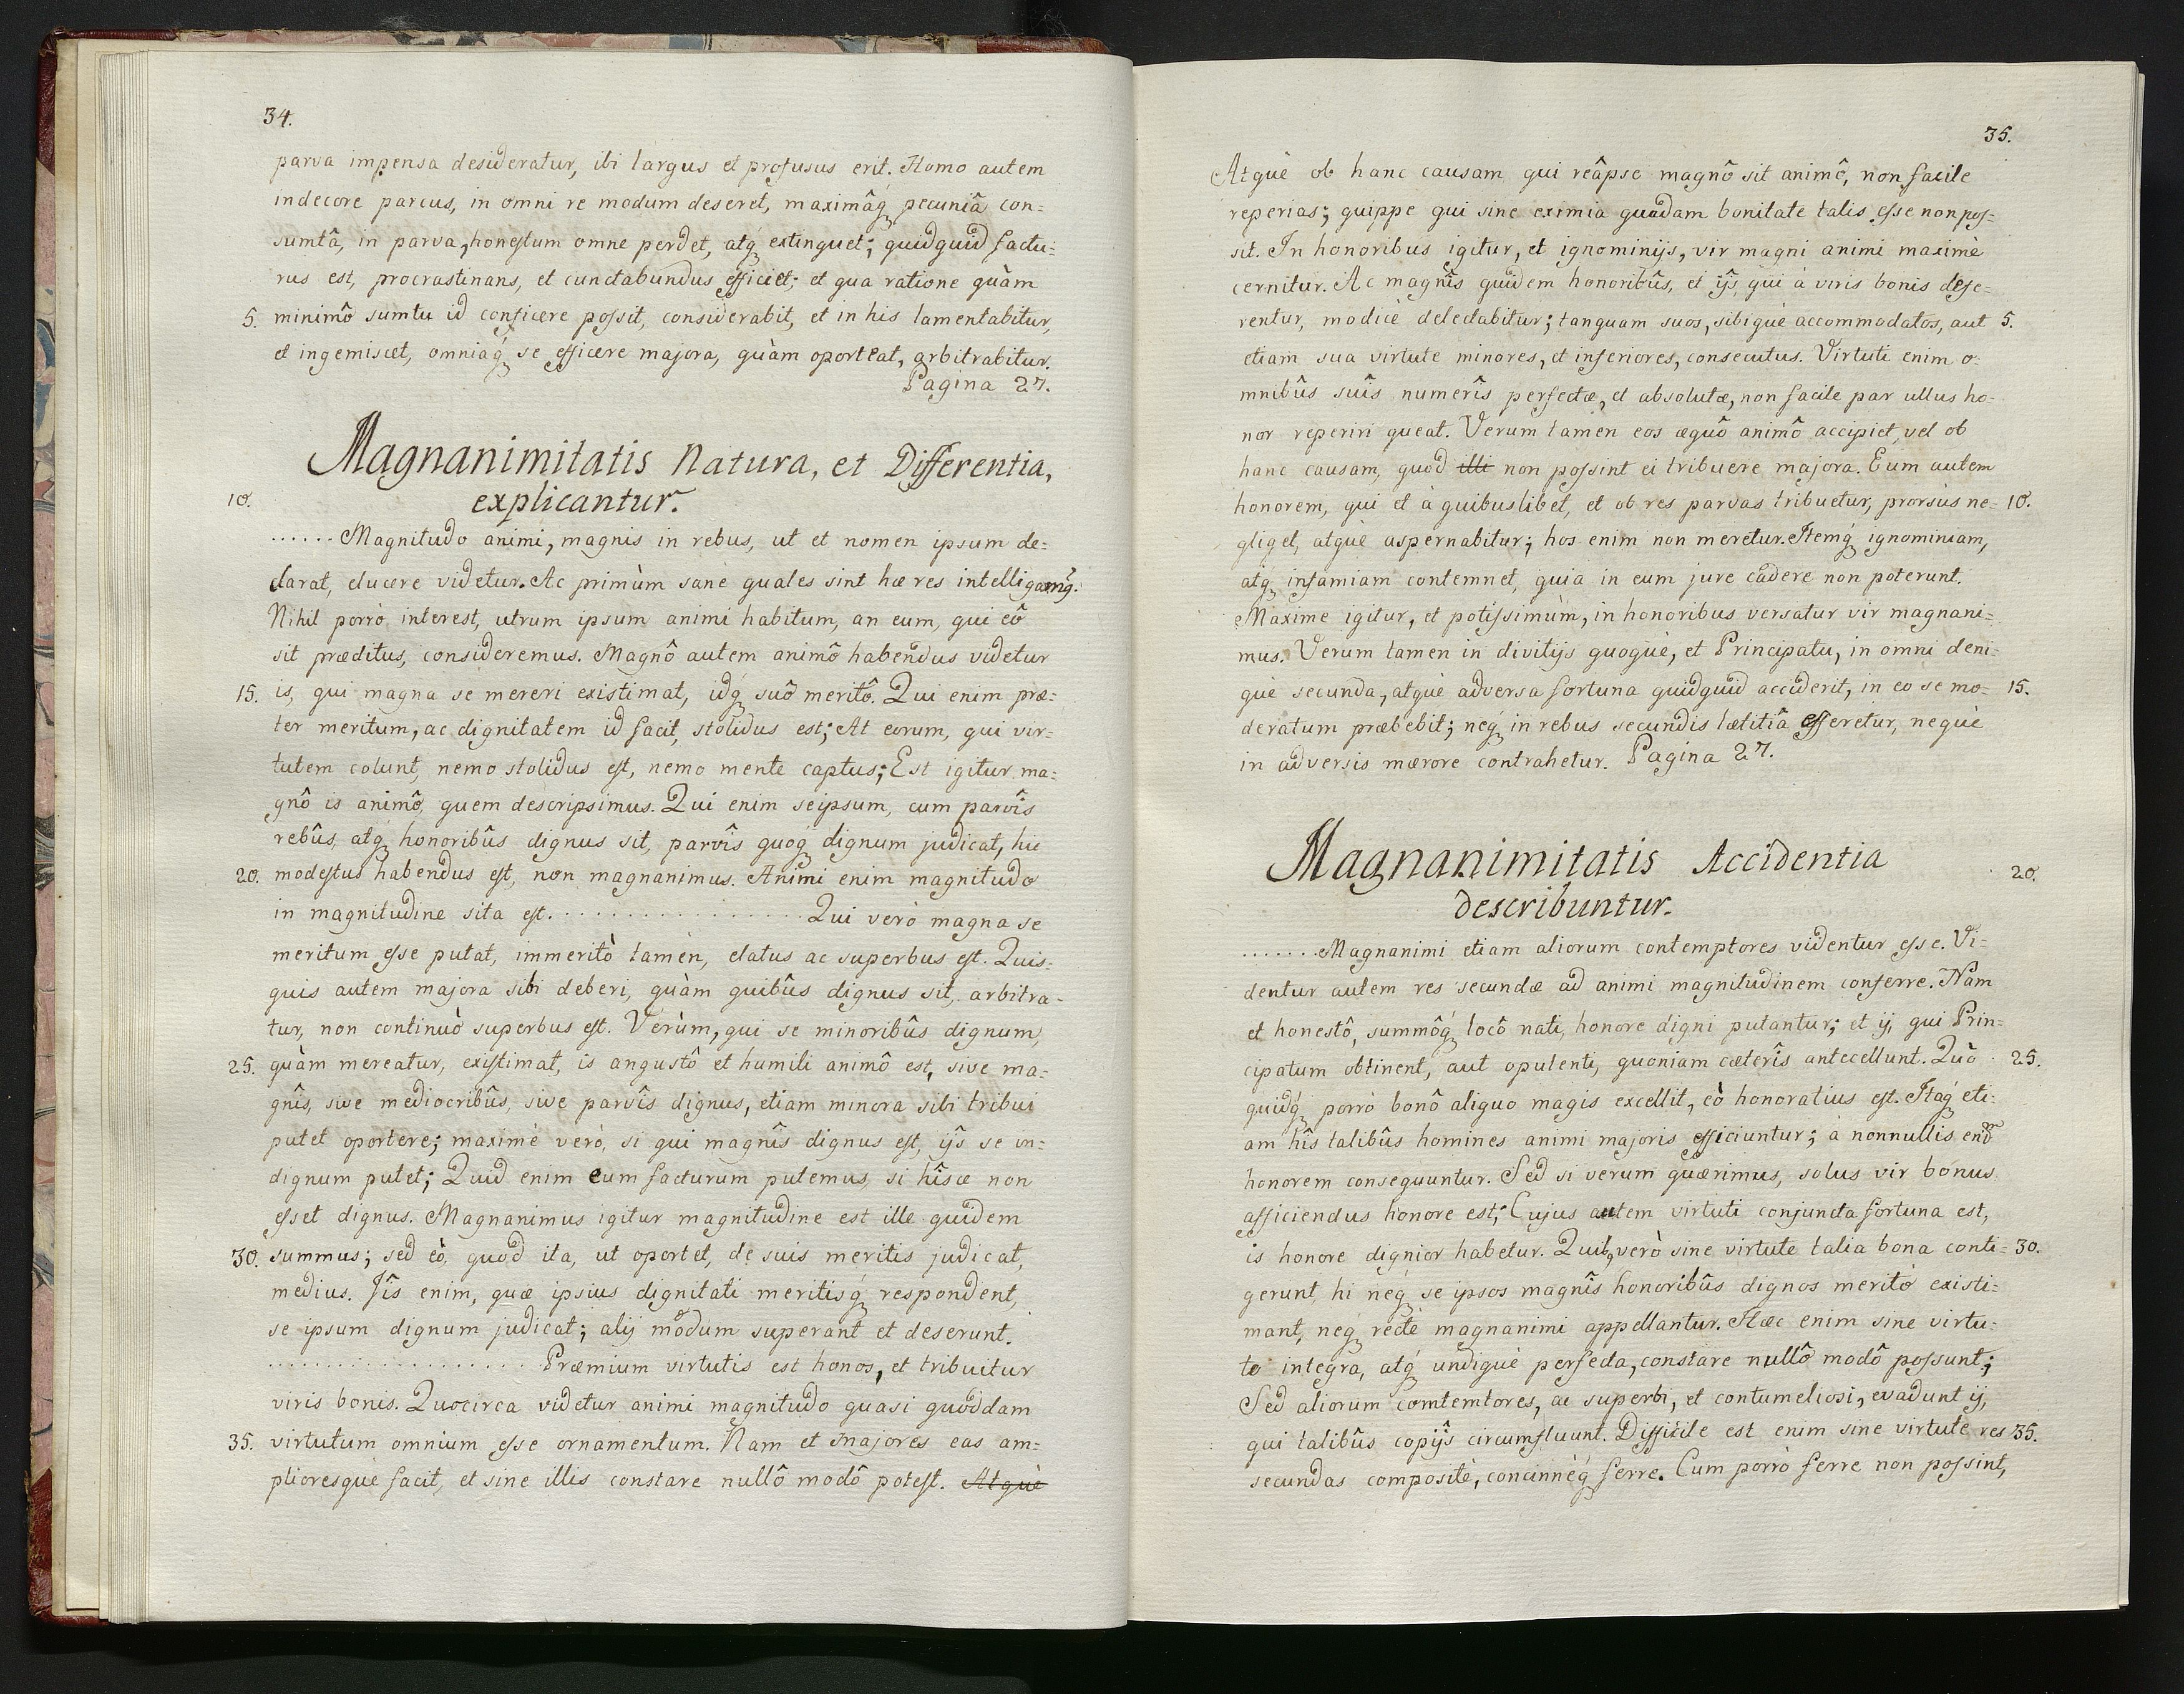 34.
parva impensa desideratur, ibi largus et profusus erit. Homo autem
indecore parcus, in omni re modum deseret, maximâq́ pecuniâ con=
sumtâ, in parva, honestum omne perdet, atq́ extinguet; quidquid factu=
rus est, procrastinans, et cunctabundus efficiet; et qua ratione quàm
5. minimô sumtu id conficere possit, considerabit, et in his lamentabitur,
et ingemiscet, omniaq́ se efficere majora, quàm oporteat, arbitrabitur.
Pagina 27.
Magnanimitatis Natura, et Differentia,
10. explicantur.
...... Magnitudo animi, magnis in rebus, ut et nomen ipsum de=
clarat, elucere videtur. Ac primùm sanè quales sint hæ res intelligamq.
Nihil porrò interest, utrum ipsum animi habitum, an eum, qui eô
sit præditus, consideremus. Magnô autem animô habendus videtur
15. is, qui magna se mereri existimat, idq́ suô meritô. Qui enim præ=
ter meritum, ac dignitatem id facit, stolidus est; At eorum, qui vir=
tutem colunt, nemo stolidus est, nemo mente captus; Est igitur ma=
gnô is animô, quem descripsimus. Qui enim seipsum, cum parvîs
rebûs, atq́ honoribûs dignus sit, parvîs quoq́ dignum judicat, hic
20. modestus habendus est, non magnanimus. Animi enim magnitudo
in magnitudine sita est. ................ Qui verò magna se
meritum esse putat, immeritò tamèn, elatus ac superbus est. Quis=
quis autem majora sibi deberi, quàm quibûs dignus sit, arbitra=
tur, non continuò superbus est. Verùm, qui se minoribûs dignum,
25. quàm mereatur, existimat, is angustô et humili animô est, sive ma=
gnîs, sive mediocribûs, sive parvîs dignus, etiam minora sibi tribui
putet oportere; maximè verò, si qui magnîs dignus est, ijs se in=
dignum putet; Quid enim eum facturum putemus, si hîsce non
esset dignus. Magnanimus igitur magnitudine est ille quidem
30. summus; sed eò, quod ita, ut oportet, de suis meritis judicat,
medius. Iîs enim, quæ ipsius dignitati meritisq́ respondent,
se ipsum dignum judicat; alij modum superant et deserunt.
.................. Præmium virtutis est honos, et tribuitur
viris bonis. Quocirca videtur animi magnitudo quasi quoddam
35. virtutum omnium esse ornamentum. Nam et majores eas am=
plioresquè facit, et sine illis constare nullô modô potest. Atquè
35.
Atquè ob hanc causam qui reâpse magnô sit animô, non facile
reperias; quippe qui sine eximia quadam bonitate talis esse non pos=
sit. In honoribus igitur, et ignominijs, vir magni animi maximè
cernitur. Ac magnîs quidem honoribûs, et ijs, qui à viris bonis defe=
rentur, modicè delectabitur; tanquam suos, sibiquè accommodatos, aut 5.
etiam sua virtute minores, et inferiores, consecutus. Virtuti enim o=
mnibûs suîs numerîs perfectæ, et absolutæ, non facile par ullus ho=
nor reperiri queat. Verum tamen eos æquô animô accipiet, vel ob
hanc causam, quod illi non possint ei tribuere majora. Eum autem
honorem, qui et à quibuslibet, et ob res parvas tribuetur, prorsùs ne= 10.
gliget, atquè aspernabitur; hos enim non meretur. Itemq́ ignominiam,
atq́ infamiam contemnet, quia in eum jure cadere non poterunt.
Maxime igitur, et potissimùm, in honoribus versatur vir magnani=
mus. Verum tamen in divitijs quoquè, et Principatu, in omni deni=
què secunda, atquè adversa fortuna quidquid acciderit, in eo se mo= 15.
deratum præbebit; neq́ in rebus secundis lætitiâ efferetur, nequè
in adversis mærore contrahetur. Pagina 27.
Magnanimitatis Accidentia 20.
describuntur.
....... Magnanimi etiam aliorum contemptores videntur esse. Vi=
dentur autem res secundæ ad animi magnitudinem conferre. Nam
et honestô, summôq́ locô nati, honore digni putantur; et ij, qui Prin=
cipatum obtinent, aut opulenti, quoniam cæterîs antecellunt. Quò 25.
quidq́ porrò bonô aliquo magis excellit, eò honoratius est. Itaq́ eti=
am hîs talibûs homines animi majoris efficiuntur; à nonnullis eñd
honorem consequuntur. Sed si verum quærimus, solus vir bonus
afficiendus honore est; Cujus autem virtuti conjuncta fortuna est,
is honore dignior habetur. Quibq verò sine virtute talia bona conti= 30.
gerunt, hi neq́ se ipsos magnîs honoribûs dignos meritò existi=
mant, neq́ rectè magnanimi appellantur. Hæc enim sine virtu=
te integra, atq́ undiquè perfecta, constare nullô modô possunt;
Sed aliorum comtemtores, ac superbi, et contumeliosi, evadunt ij,
qui talibûs copijs circumfluunt. Difficile est enim sine virtute res 35.
secundas compositè, concinnèq́ ferre. Cum porrò ferre non possint,